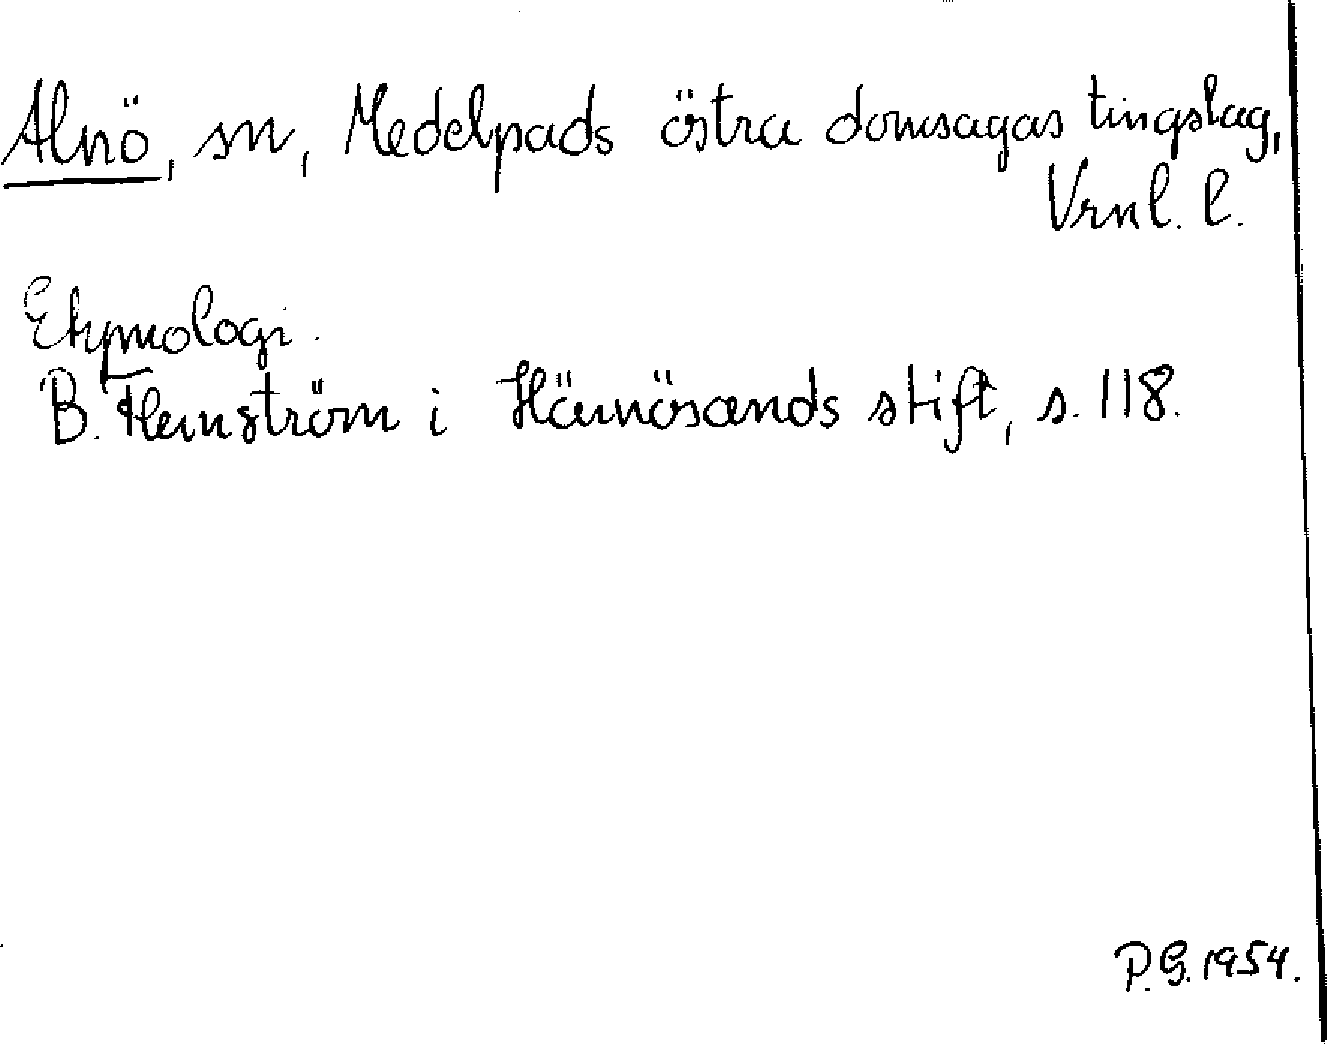 Alnö, sn, Medelpads östra domsagas tingslag,
Vrnl. l.
Etymologi.
B. Flemström i Härnösands stift, s. 118.
P.G. 1954.